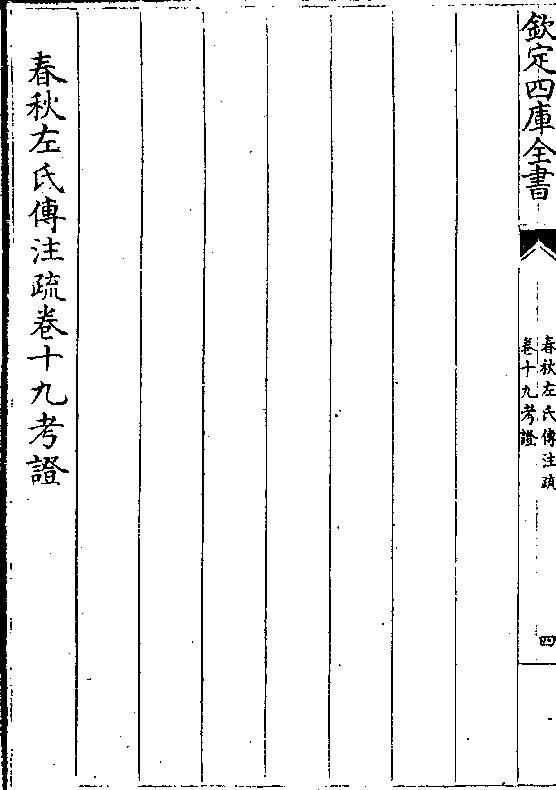 欽定四庫全書
春秋左氏傳注疏
卷十九考證
四
春秋左氏傳注疏卷十九考證